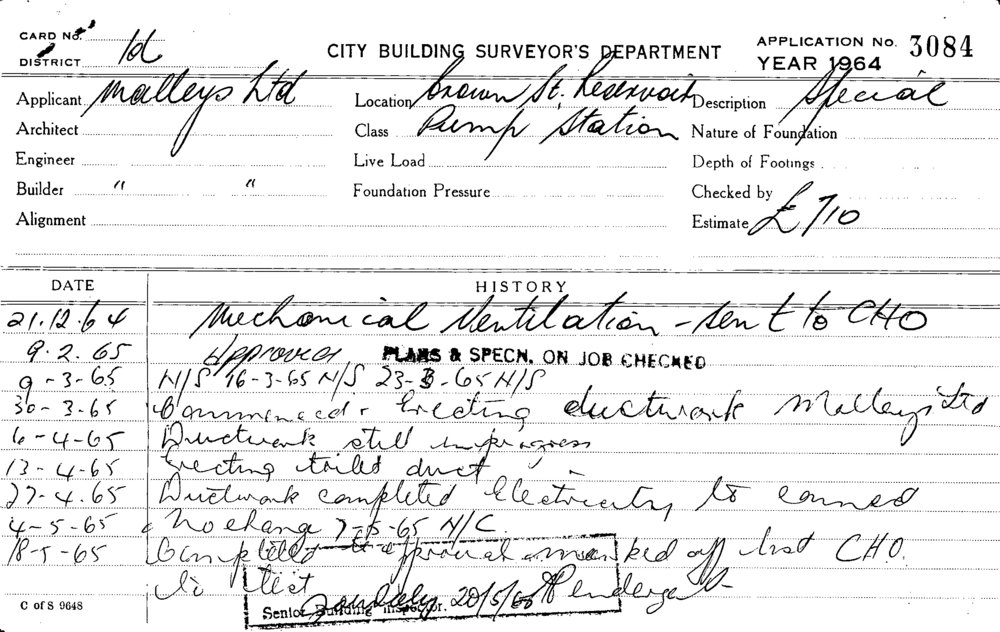 CARD No.
DISTRICT 1d
CITY BUILDING SURVEYOR'S DEPARTMENT
APPLICATION No. 3084
YEAR 1964
Applicant Malleys Ltd
Location Crown St. Reservoir
Description Special
Architect
Class Pump Station
Nature of Foundation
Engineer
Live Load
Depth of Footings
Builder " "
Foundation Pressure
Checked by
Alignment
Estimate £710
DATE HISTORY
21.12.64 Mechanical Ventilation - sent to CHO
9.2.65 Approved PLANS & SPECN. ON JOB CHECKED
9-3-65 N/S 16-3-65 N/S 23-3-65 N/S
30-3-65 Commenced Erecting ductwork Malleys Ltd
6-4-65 Ductwork still in progress
13-4-65 Erecting toilet duct
27-4-65 Ductwork completed Electricity to connect
4-5-65 No change 7-5-65 N/C.
18-5-65 Completed to approval marked off but CHO.
to test
20/5/65
Senior Building Inspector.
C of S 9648